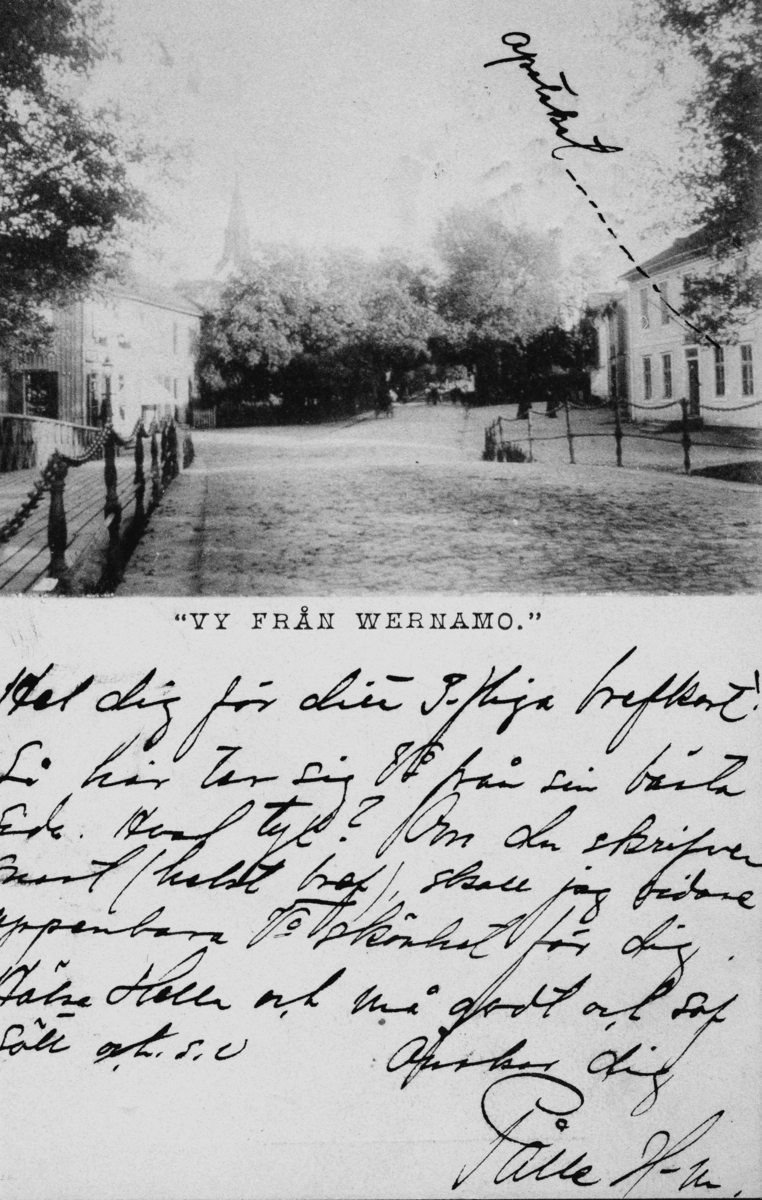 apoteket
“VY FRÅN WERNAMO.”
Hel dig för ditt brefkort!
Så här tar sig från sin bästa
sida. Hvad tyks? Om du skrifver
snart (helst bref), skall jag vidare
uppenbara skönhet för dig.
Hälsa Hella och må godt och sof
sött o.s.v önskar dig
Pålle H-m.